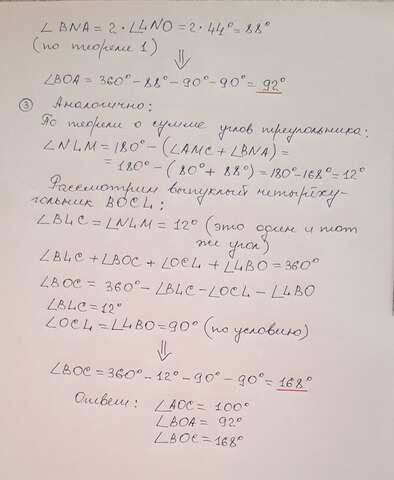 ∠BNA = 2 · ∠LNO = 2 · 44° = 88°
(по теореме 1)
⇓
∠BOA = 360° − 88° − 90° − 90° = 92°
③ Аналогично:
По теореме о сумме углов треугольника:
∠NLM = 180° − (∠AMC + ∠BNA) =
= 180° − (80° + 88°) = 180° − 168° = 12°
Рассмотрим выпуклый четырёху-
гольник BOCL:
∠BLC = ∠NLM = 12° (это один и тот
же угол)
∠BLC + ∠BOC + ∠OCL + ∠LBO = 360°
∠BOC = 360° − ∠BLC − ∠OCL − ∠LBO
∠BLC = 12°
∠OCL = ∠LBO = 90° (по условию)
⇓
∠BOC = 360° − 12° − 90° − 90° = 168°
Ответ: ∠AOC = 100°
∠BOA = 92°
∠BOC = 168°